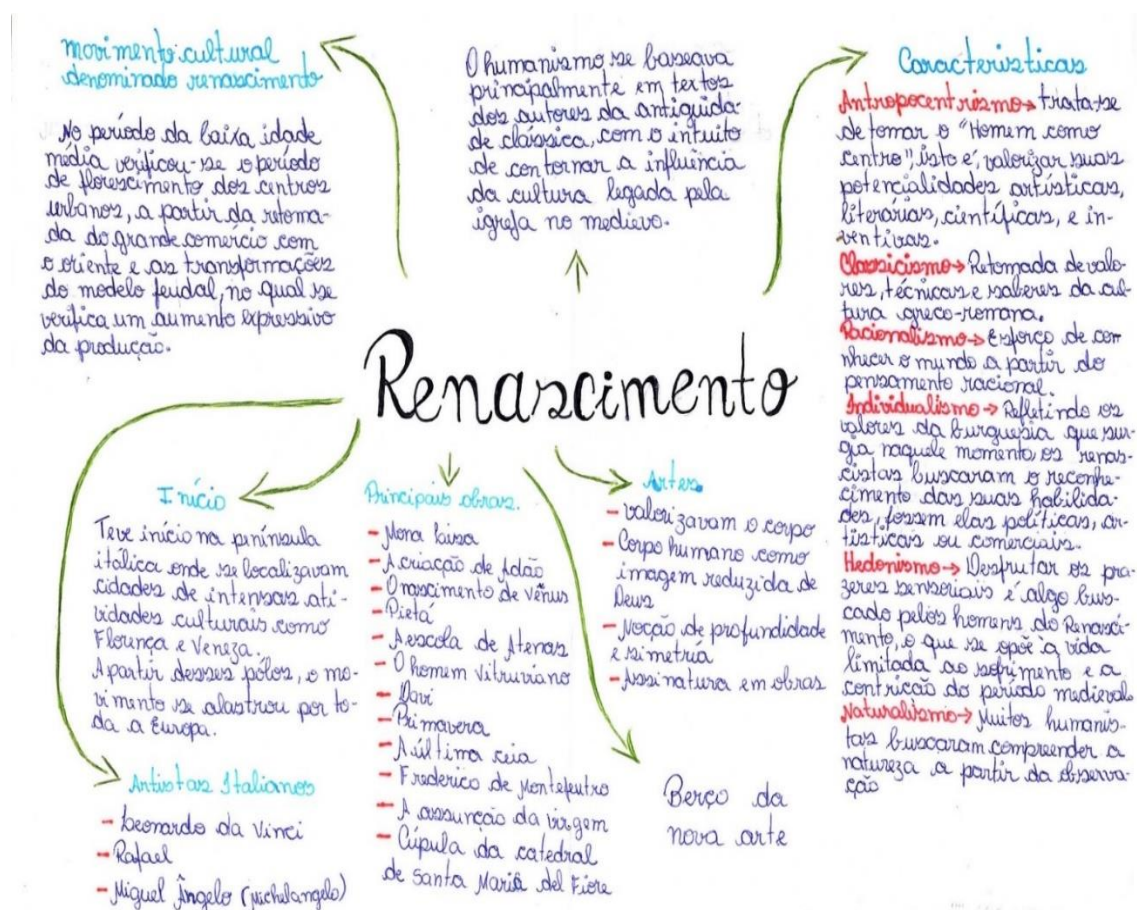 movimento cultural
denominado renascimento
No período da baixa idade
média verificou-se o período
de florescimento dos centros
urbanos, a partir da retoma-
da do grande comércio com
o oriente e as transformações
do modelo feudal, no qual se
verifica um aumento expressivo
da produção.
O humanismo se baseava
principalmente em textos
dos autores da antiguida-
de clássica, com o intuito
de contornar a influência
da cultura legada pela
igreja no medievo.
Características
Antropocentrismo→ trata-se
de tomar o "Homem como
centro", isto é, valorizar suas
potencialidades artísticas,
literárias, científicas, e in-
ventivas.
Classicismo→ Retomada de valo-
res, técnicas e saberes da cul-
tura greco-romana.
Racionalismo→ Esforço de com
nhecer o mundo a partir do
pensamento racional.
Individualismo→ Refletindo os
valores da burguesia que sur-
gia naquele momento os renas-
cistas buscaram o reconhe-
cimento das suas habilida-
des, fossem elas políticas, ar-
tísticas ou comerciais.
Hedonismo→ Desfrutar os pra-
zeres sensoriais é algo bus-
cado pelos homens do Renasci-
mento, o que se opõe à vida
limitada ao sofrimento e a
contricção do período medieval.
Naturalismo→ Muitos humanis-
tas buscaram compreender a
natureza a partir da observa-
ção
Renascimento
Início
Teve início na península
itálica onde se localizavam
cidades de intensas ati-
vidades culturais como
Florença e Veneza.
A partir desses pólos, o mo-
vimento se alastrou por to-
da a Europa.
Principais obras.
- Mona Laisa
- A criação de Adão
- O nascimento de vênus
- Pietá
- A escola de Atenas
- O homem vitruviano
- Davi
- Primavera
- A última ceia
- Frederico de Montefeutro
- A assunção da virgem
- Cúpula da catedral
de Santa Mariâ del Fiore
Artes
- valorizavam o corpo
- Corpo humano como
imagem reduzida de
Deus
- Noção de profundidade
e simetria
- Assinatura em obras
Artistas Italianos
- Leonardo da Vinci
- Rafael
- Miguel Ângelo (Michelangelo)
Berço da
nova arte